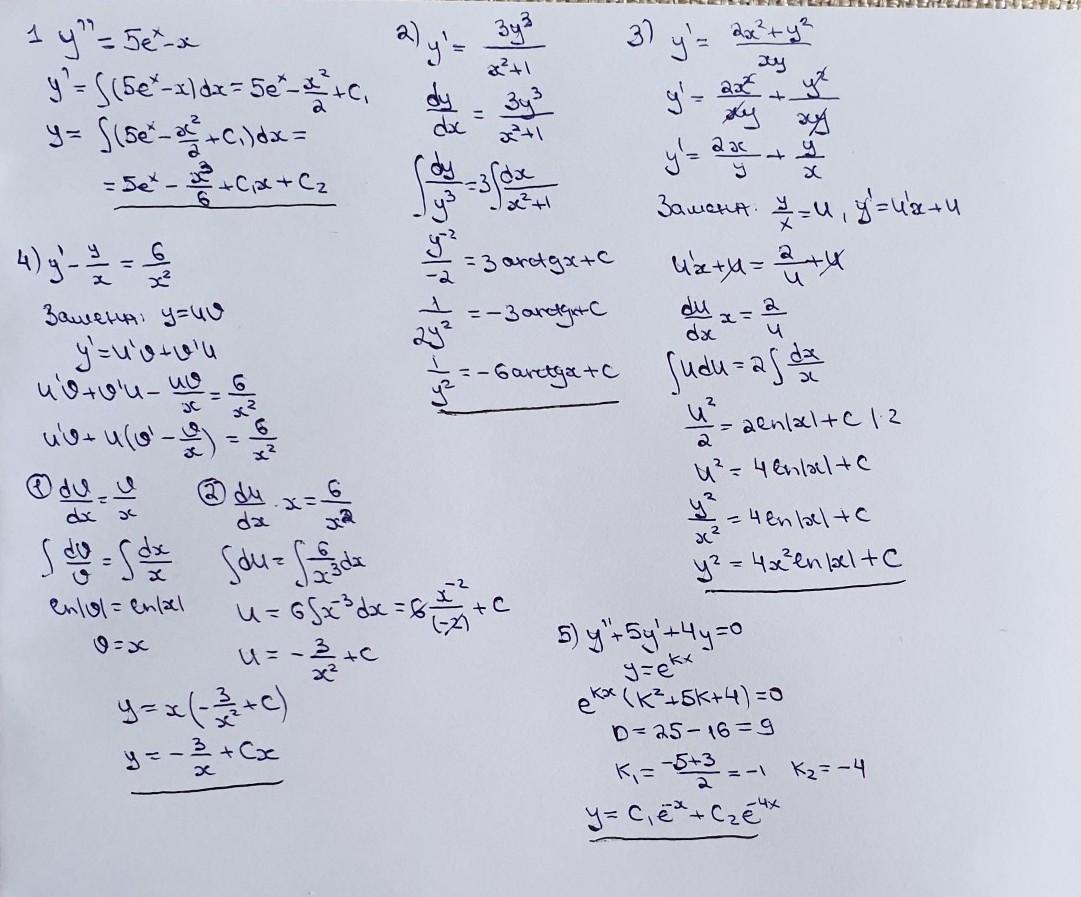 1 y'' = 5eˣ - x
y' = ∫(5eˣ - x)dx = 5eˣ - x²/2 + C₁
y = ∫(5eˣ - x²/2 + C₁)dx =
= 5eˣ - x³/6 + C₁x + C₂
2) y' = 3y³/(x²+1)
dy/dx = 3y³/(x²+1)
∫dy/y³ = 3∫dx/(x²+1)
y⁻²/-2 = 3arctgx + C
1/2y² = -3arctgx + C
1/y² = -6arctgx + C
3) y' = (2x²+y²)/xy
y' = 2x²/xy + y²/xy
y' = 2x/y + y/x
Замена: y/x = u, y' = u'x + u
u'x + u = 2/u + u
du/dx x = 2/u
∫udu = 2∫dx/x
u²/2 = 2ln|x| + C |·2
u² = 4ln|x| + C
y²/x² = 4ln|x| + C
y² = 4x²ln|x| + C
4) y' - y/x = 6/x²
Замена: y = uv
y' = u'v + v'u
u'v + v'u - uv/x = 6/x²
u'v + u(v' - v/x) = 6/x²
① dv/dx = v/x
∫dv/v = ∫dx/x
ln|v| = ln|x|
v = x
② du/dx · x = 6/x²
∫du = ∫6/x³ dx
u = 6∫x⁻³dx = 6 x⁻²/(-2) + C
u = -3/x² + C
y = x(-3/x² + C)
y = -3/x + Cx
5) y'' + 5y' + 4y = 0
y = eᵏˣ
eᵏˣ(k² + 5k + 4) = 0
D = 25 - 16 = 9
k₁ = (-5+3)/2 = -1 k₂ = -4
y = C₁e⁻ˣ + C₂e⁻⁴ˣ